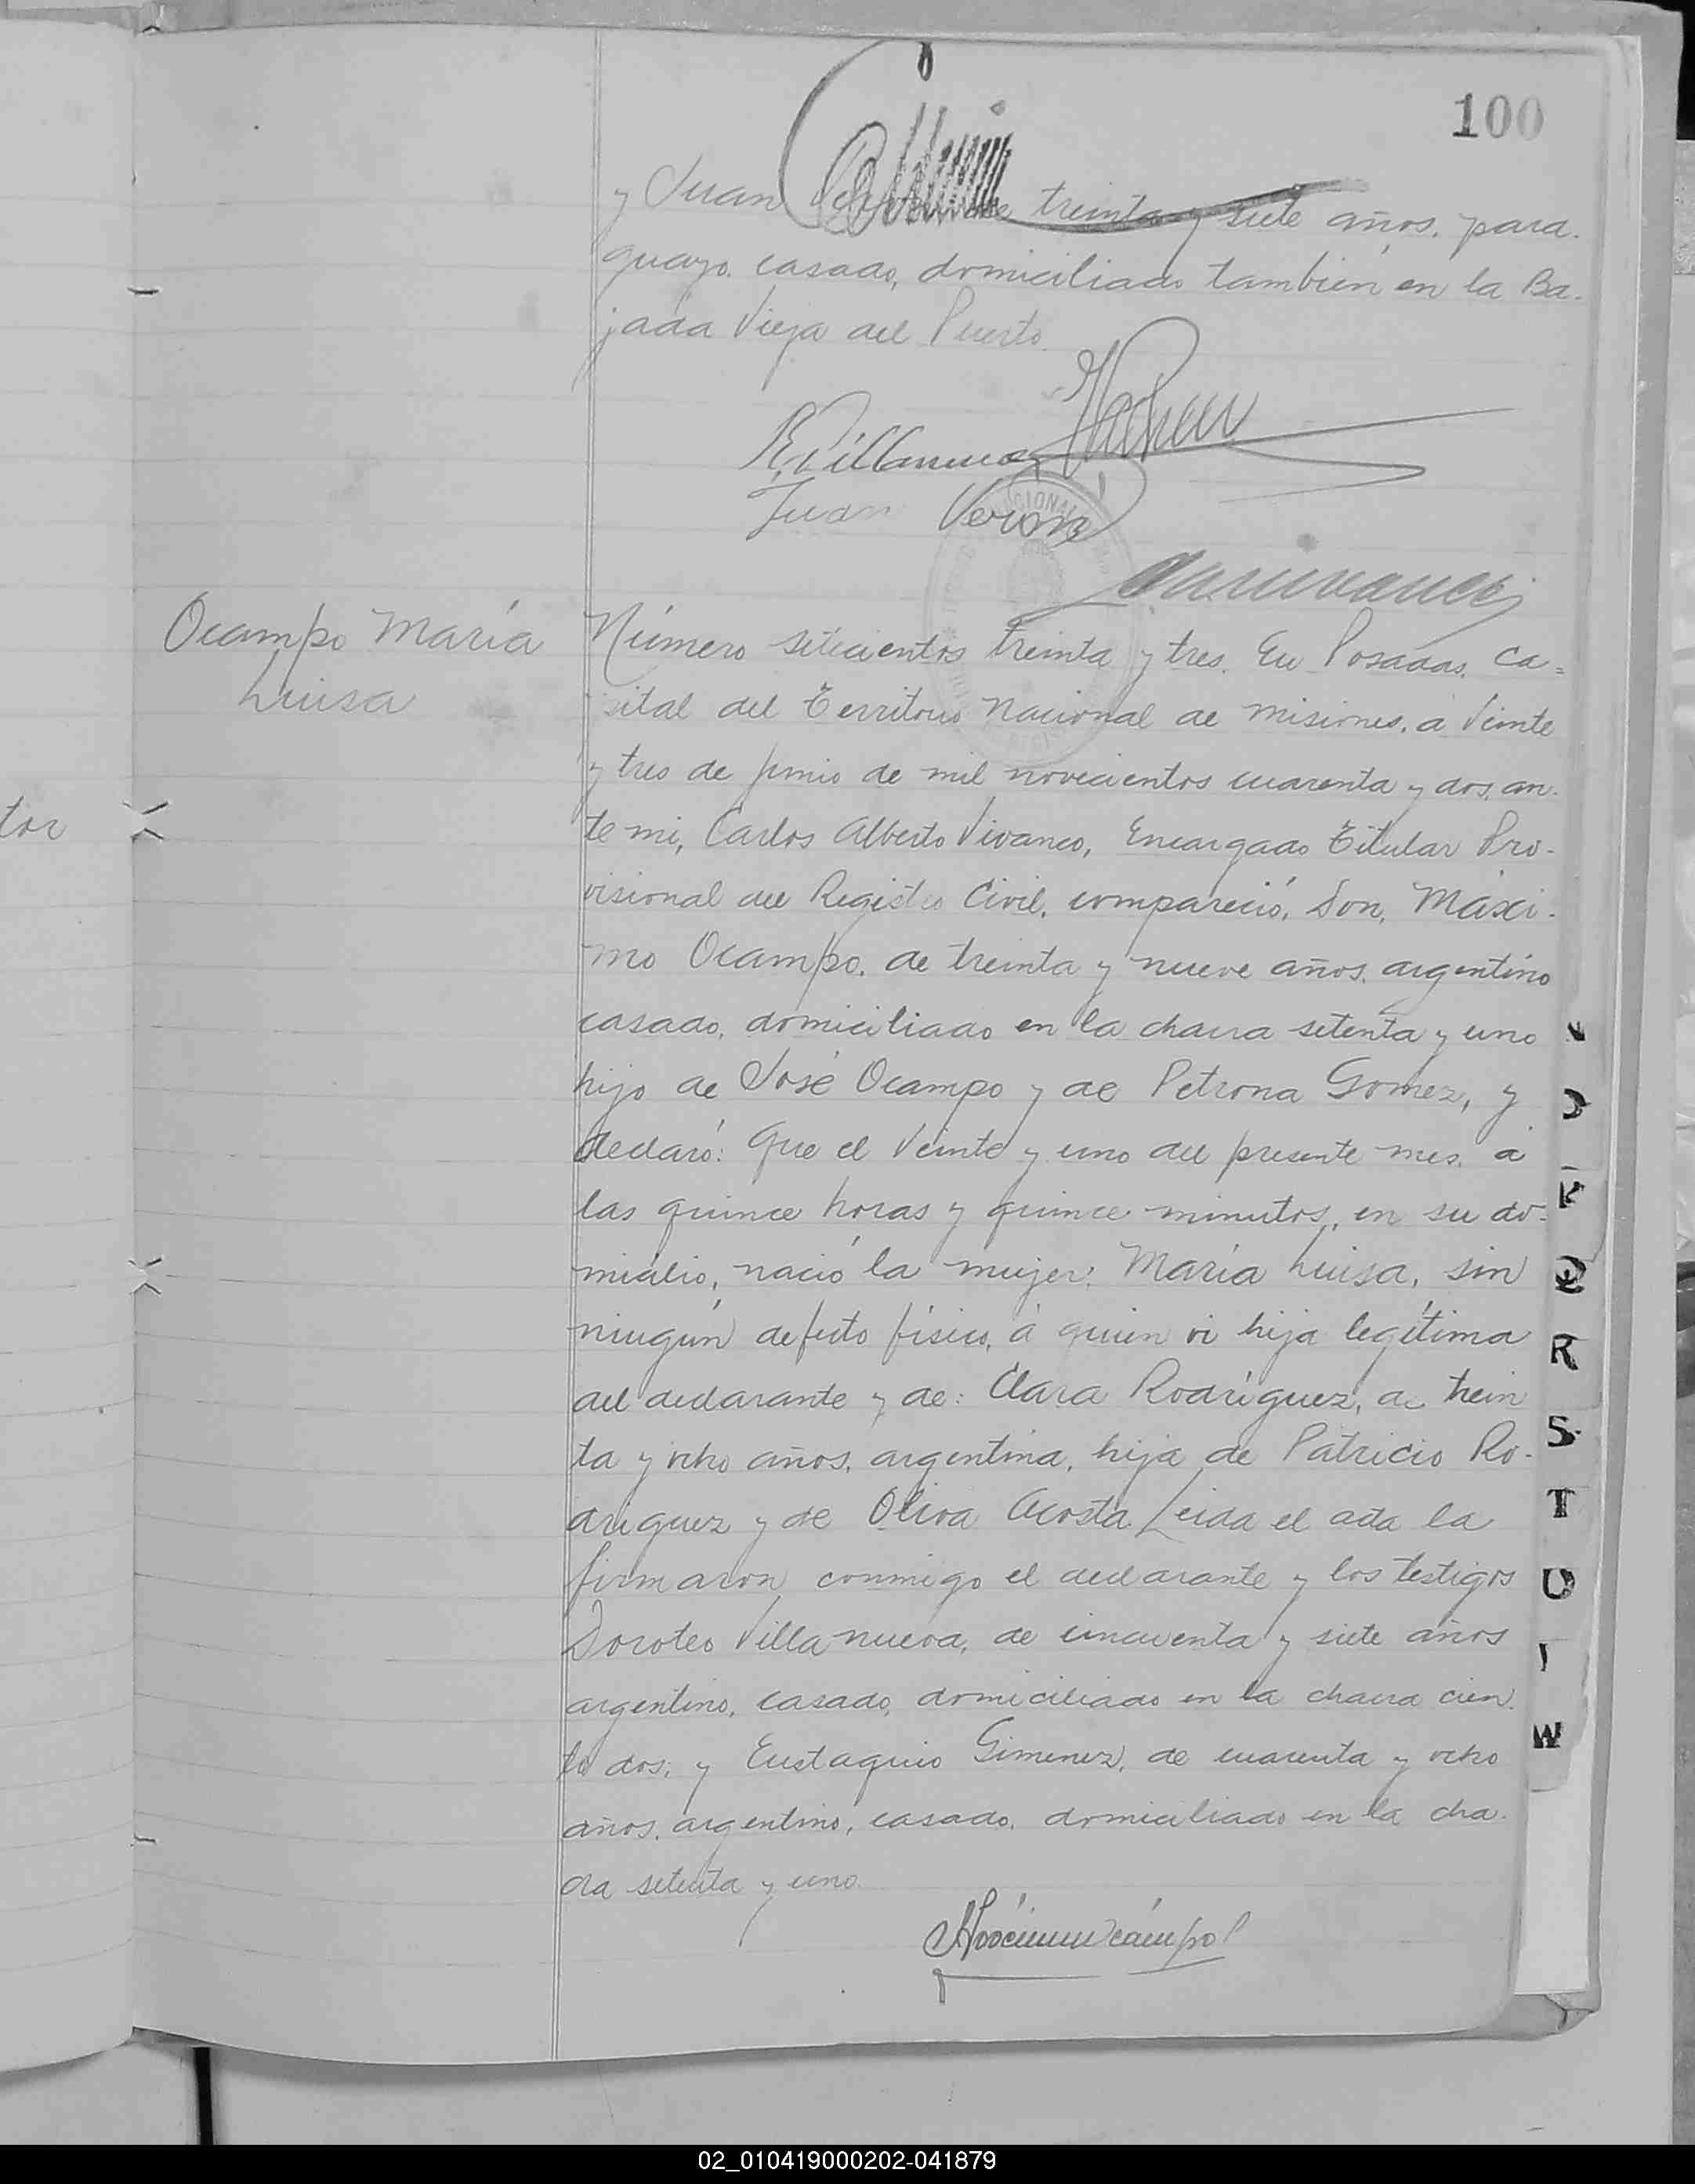 100
y Juan treinta y siete años, para-
guayo, casado, domiciliado también en la Ba-
jada Vieja del Puerto.
Villanueva
Juan Verón
Ocampo María
Luisa
Número setecientos treinta y tres. En Posadas, ca=
pital del Territorio Nacional de Misiones, a veinte
y tres de junio de mil novecientos cuarenta y dos, an-
te mi, Carlos Alberto Vivanco, Encargado Titular Pro-
visional del Registro Civil, compareció, Don, Máxi-
mo Ocampo, de treinta y nueve años, argentino
casado, domiciliado en la chacra setenta y uno
hijo de José Ocampo y de Petrona Gomez, y
declaró: Que el veinte y uno del presente mes, a
las quince horas y quince minutos, en su do-
micilio, nació la mujer: María Luisa, sin
ningún defecto físico, a quien vi hija legítima
del declarante y de: Clara Rodríguez, de trein
ta y ocho años, argentina, hija de Patricio Ro-
driguez y de Oliva Acosta. Leida el acta la
firmaron conmigo el declarante y los testigos
Doroteo Villanueva, de cincuenta y siete años
argentino, casado, domiciliado en la chacra cien-
to dos; y Eustaquio Gimenez, de cuarenta y ocho
años, argentino, casado, domiciliado en la cha-
cra setenta y uno.
Máximo Ocampo
tor
R
S
T
U
W
02_010419000202-041879